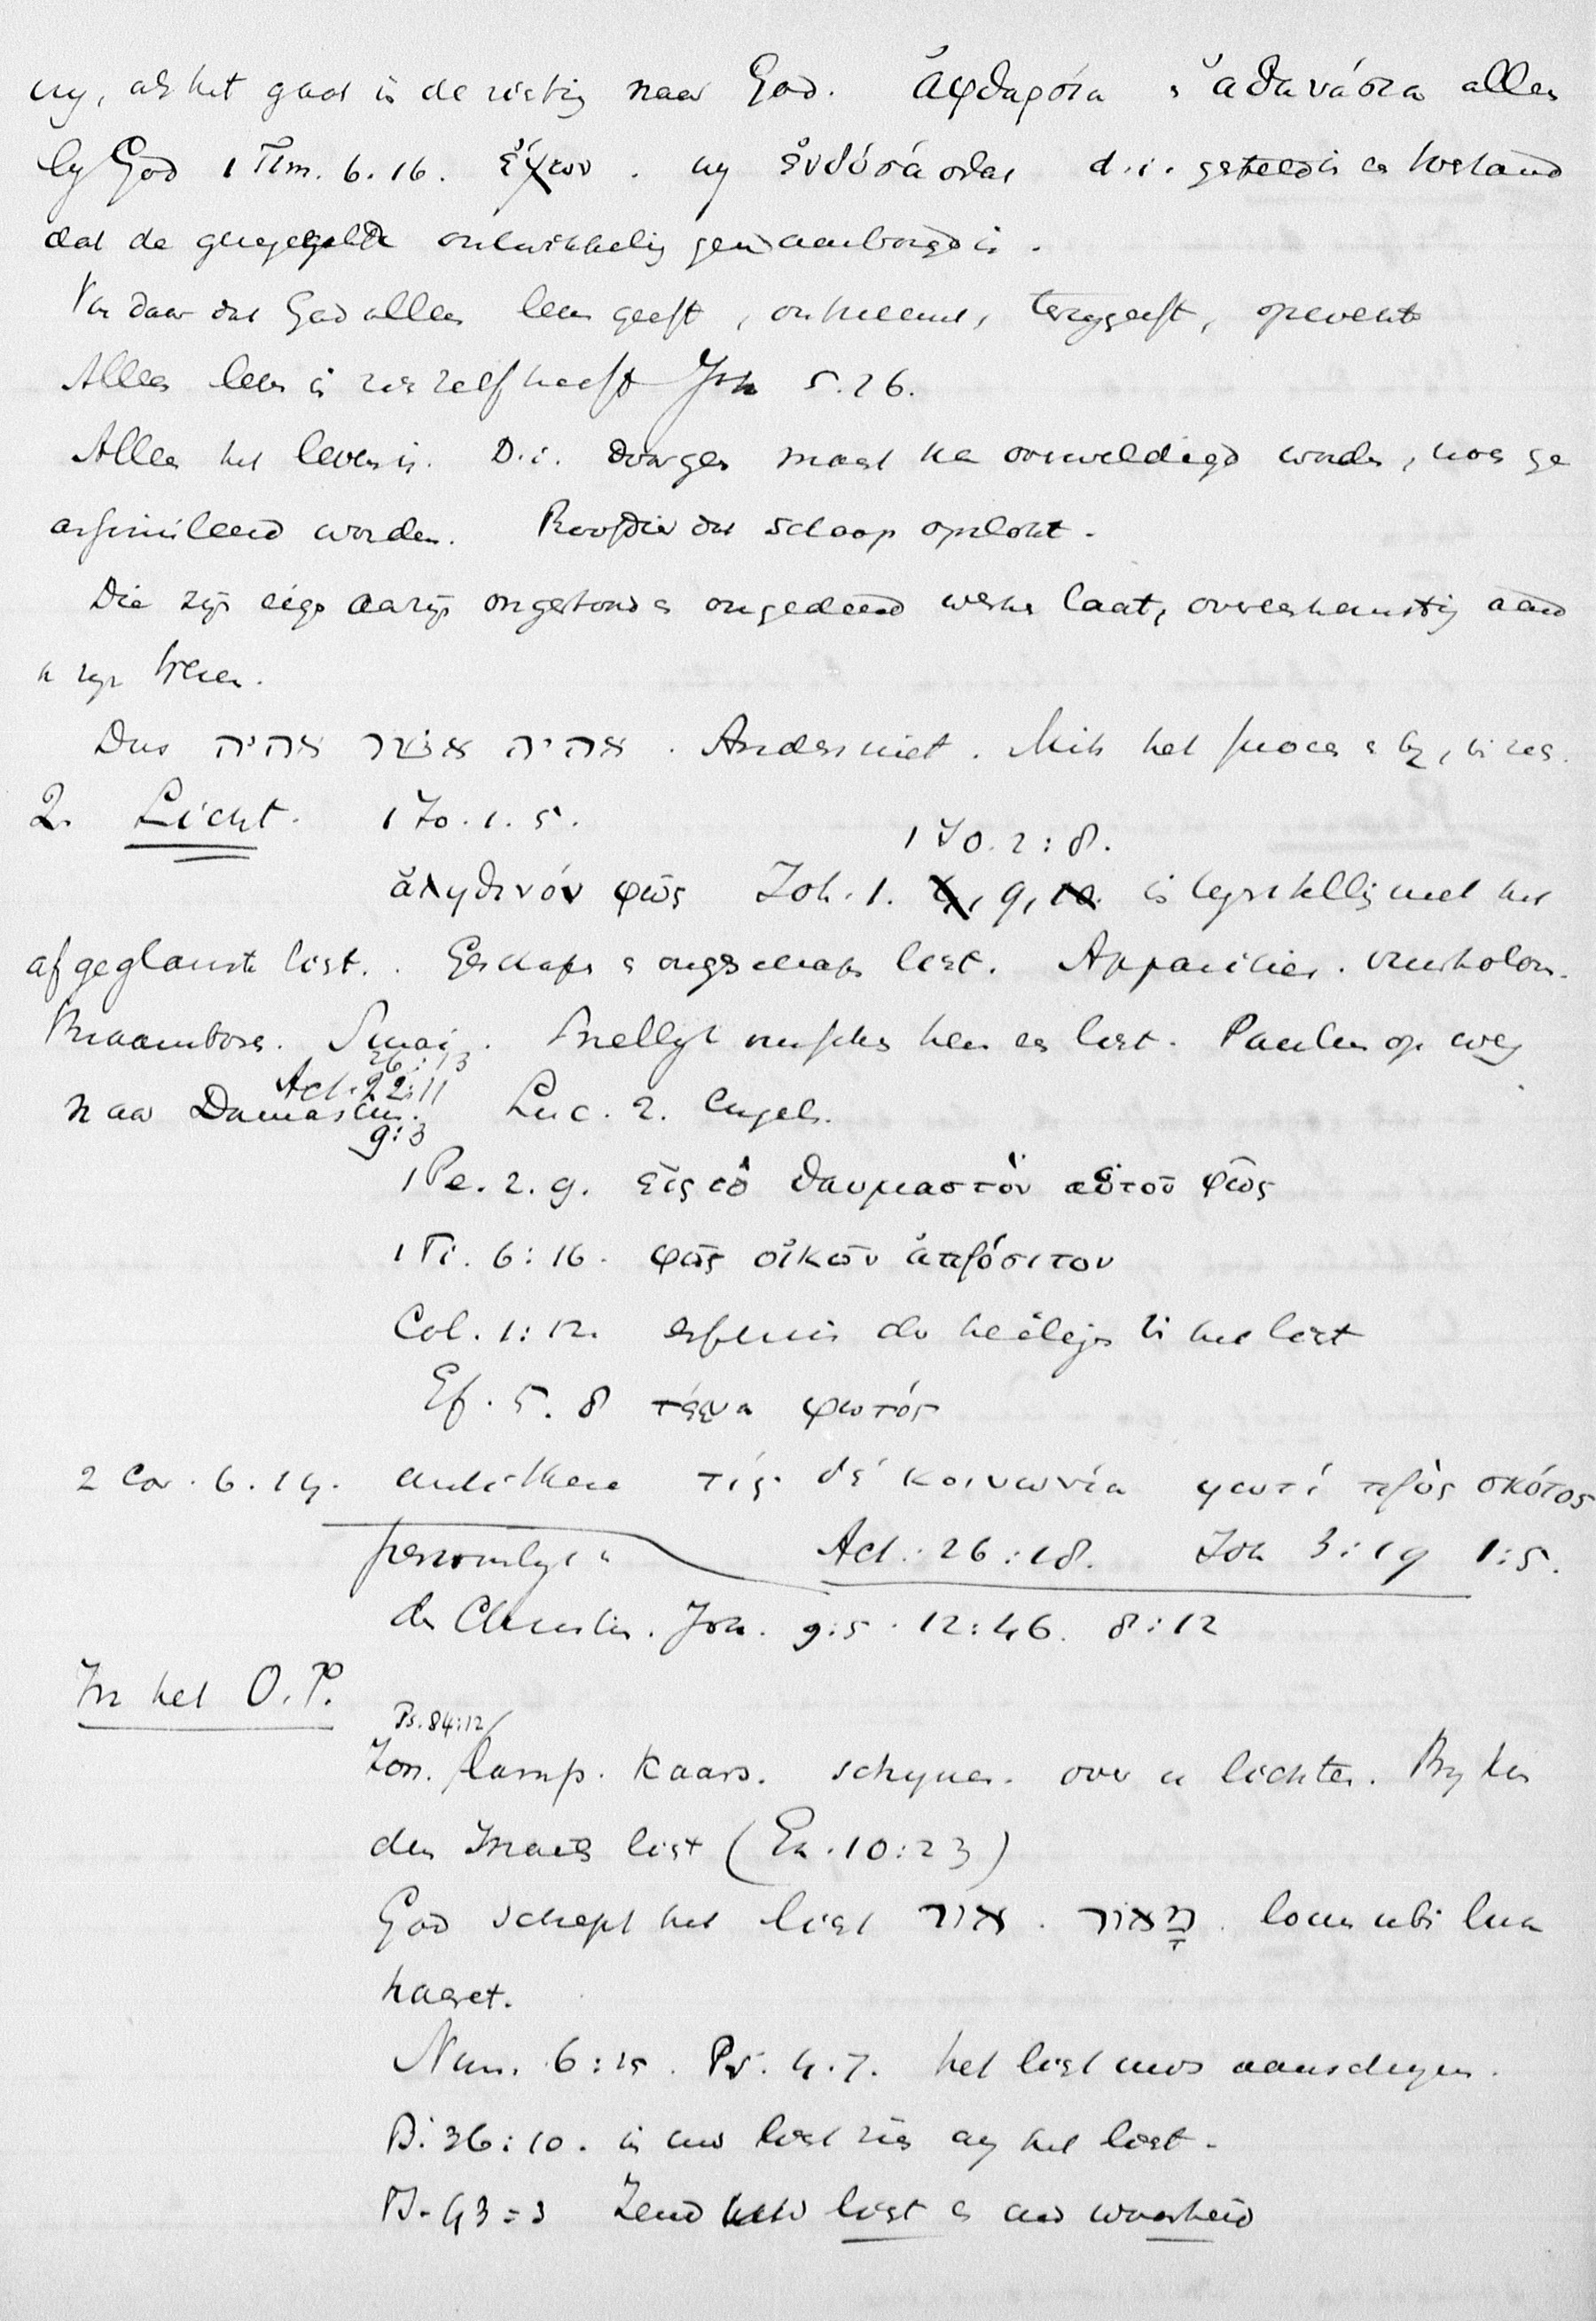 wy, als het gaat in de richting naar God. ἀφθαρσία & ἀθανάσια alleen
by God 1 Tim. 6.16. ἔχων. wy ἐνδύσασθαι d.i. gesteld in een toestand
dat de geregelde ontwikkeling gewaarborgd is.
Van daar dat God alleen leven geeft, ontneemt, teruggeeft, opwekt
Alleen leven in zich zelf heeft Joh 5.26.
Alleen het leven is. D.i. door geen macht kan overweldigd worden, noch ge
assimileerd worden. Roofdier dat schaap opslokt.
Die zijn eigen aanzijn ongestoord en ongedeerd werken laat, overeenkomstig aard
en zijn wezen.
Dus אהיה אשר אהיה. Anders niet. Mits het proces er bij, in zich.
2. Licht. 1 Jo. 1. 5.
1 Jo. 2:8.
ἀληθινόν φῶς Joh. 1. 4, 9, 10. in tegenstelling met het
afgeglansde licht. Geschapen & ongeschapen licht. Apparitien. vuurkolom.
Braambosch. Sinai. Snellyk omscheen hen een licht. Paulus op weg
26:13
Act. 22:11
naar Damascus. Luc. 2. Engelen.
9:3
1 Pe. 2. 9. εἰς τὸ θαυμαστὸν αὐτοῦ φῶς
1 Ti. 6:16. φῶς οἰκῶν ἀπρόσιτον
Col. 1:12. erfenis der heiligen in het licht
Ef. 5. 8 τέκνα φωτός
2 Cor. 6.14. antithese τίς δέ κοινωνία φωτί πρὸς σκότος
persoonlyk in Act. 26:18. Joh 3:19 1:5.
den Christus. Joh. 9:5. 12:46. 8:12
In het O.T.
Ps. 84:12
Zon. lamp. Kaars. schynen. over en lichten. By kin
deren Israels licht (Ex. 10:23)
God schept het licht אור. מָאוֹר. locus ubi lux
haeret.
Num. 6:25. Ps. 4.7. het licht uws aanschyns.
Ps. 36:10. in uw licht zien wy het licht.
Ps. 43:3 Zend uw licht en uw waarheid